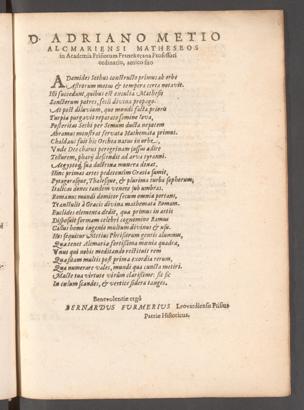 D. ADRIANO METIO
ALCMARIENSI MATHESEOS
in Academia Frisiorum Franekerana Professori
ordinario, amico suo
Adamides Sethus constructo primus ab orbe
Astrorum motus & tempora certa notavit.
Hi succedunt, quibus est exculta Mathesis
Sanctorum patres, secli divina propago.
Ast post diluvium, quo mundi facta priorû
Turpia purgavit reparato semine Iova,
Posteritas Sethi per Semum ducta nepotem
Abramus monstrat servata Mathemata primus.
Chaldaus fuit hic Orchoa natus in orbe,
Unde Deo charus peregrinam jussus adire
Tellurem, phary descendit ad arva tyranni.
Aegypto, sua doctrina munera donat,
Hinc primas artes pedetentim Gracia sumit,
Pytagorasque, Thalesque, & plurima turba sophorum;
Italicas donec tandem venere sub umbras.
Romanus mundi domitor secum omnia portans,
Transtulit à Graecis divina mathemata Romam.
Euclides elementa dedit, qua primus in artis
Disposuit formam celebri cognomine Ramus
Callus homo ingenio multum divinus & usu.
Hos sequitur Metius Phrisiorum gentis alumnus,
Quatenet Alemaria fortissima mœnia quadra,
Vnus qui nobis meditando restituit rem
Quasitam multis post prima exordia rerum,
Qua numerare vales, mundi qua cuncta metiri.
Macte tua virtute virûm clarissime: sic sic
In cœlum scandes, & vertice sidera tanges.
Benevolentiæ ergò
BERNARDUS FURMERIUS Leovardiensis Frisius
Patriæ Historicus.